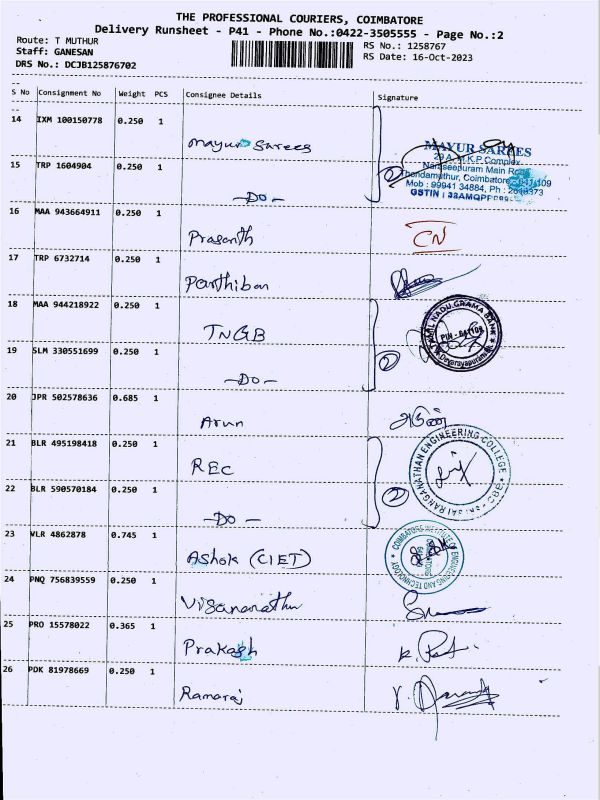 THE PROFESSIONAL COURIERS, COIMBATORE
Delivery Runsheet - P41 - Phone No.:0422-3505555 - Page No.:2
Route: T MUTHUR RS No.: 1258767
Staff: GANESAN RS Date: 16-Oct-2023
DRS No.: DCJB125876702
S No Consignment No Weight PCS Consignee Details Signature
14 IXM 100150778 0.250 1
Mayur Sarees
MAYUR SAREES
29 A, M.K.P Complex
Naraseepuram Main Road
Thondamuthur, Coimbatore - 641 109
Mob : 99941 34884, Ph :
GSTIN :
15 TRP 1604904 0.250 1
-DO- 2
16 MAA 943664911 0.250 1
Prasanth CN
17 TRP 6732714 0.250 1
Parthiban
18 MAA 944218922 0.250 1
TNGB
TAMIL NADU GRAMA BANK
PIN - 641109
Devarayapuram
19 SLM 330551699 0.250 1
-DO- 2
20 JPR 502578636 0.685 1
Arun அருண்
21 BLR 495198418 0.250 1
REC
RANGANATHAN ENGINEERING COLLEGE
22 BLR 590570184 0.250 1
-DO- 2
23 VLR 4862878 0.745 1
Ashok (CIET)
COIMBATORE INSTITUTE OF ENGINEERING AND TECHNOLOGY
24 PNQ 756839559 0.250 1
25 PRO 15578022 0.365 1
Prakash
26 PDK 81978669 0.250 1
Ramaraj